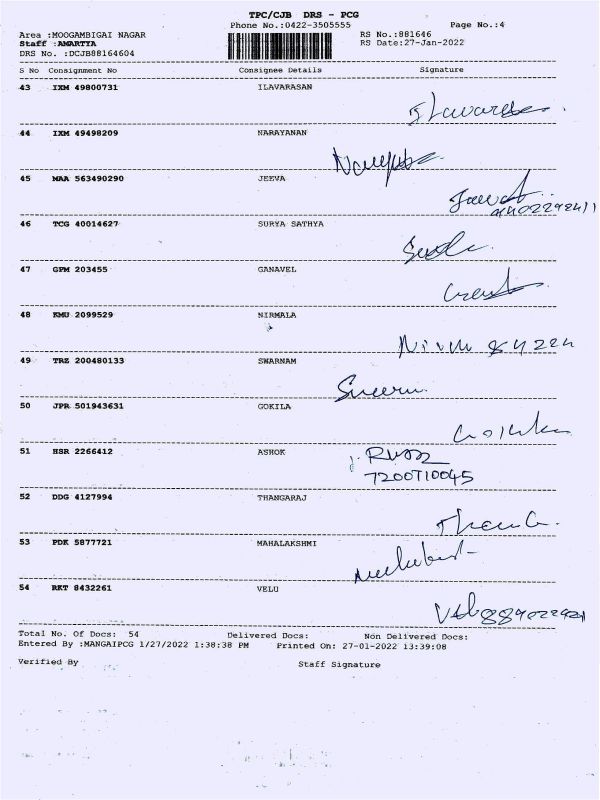 TPC/CJB DRS - PCG
Phone No.:0422-3505555 Page No.:4
Area :MOOGAMBIGAI NAGAR RS No.:881646
Staff :AMARTYA RS Date:27-Jan-2022
DRS No. :DCJB88164604
S No Consignment No Consignee Details Signature
43 IXM 49800731 ILAVARASAN
44 IXM 49498209 NARAYANAN
45 MAA 563490290 JEEVA
46 TCG 40014627 SURYA SATHYA
47 GPM 203455 GANAVEL
48 KMU 2099529 NIRMALA
49 TRZ 200480133 SWARNAM
50 JPR 501943631 GOKILA
51 HSR 2266412 ASHOK
7200710045
52 DDG 4127994 THANGARAJ
53 PDK 5877721 MAHALAKSHMI
54 RKT 8432261 VELU
Total No. Of Docs: 54 Delivered Docs: Non Delivered Docs:
Entered By :MANGAIPCG 1/27/2022 1:38:38 PM Printed On: 27-01-2022 13:39:08
Verified By Staff Signature